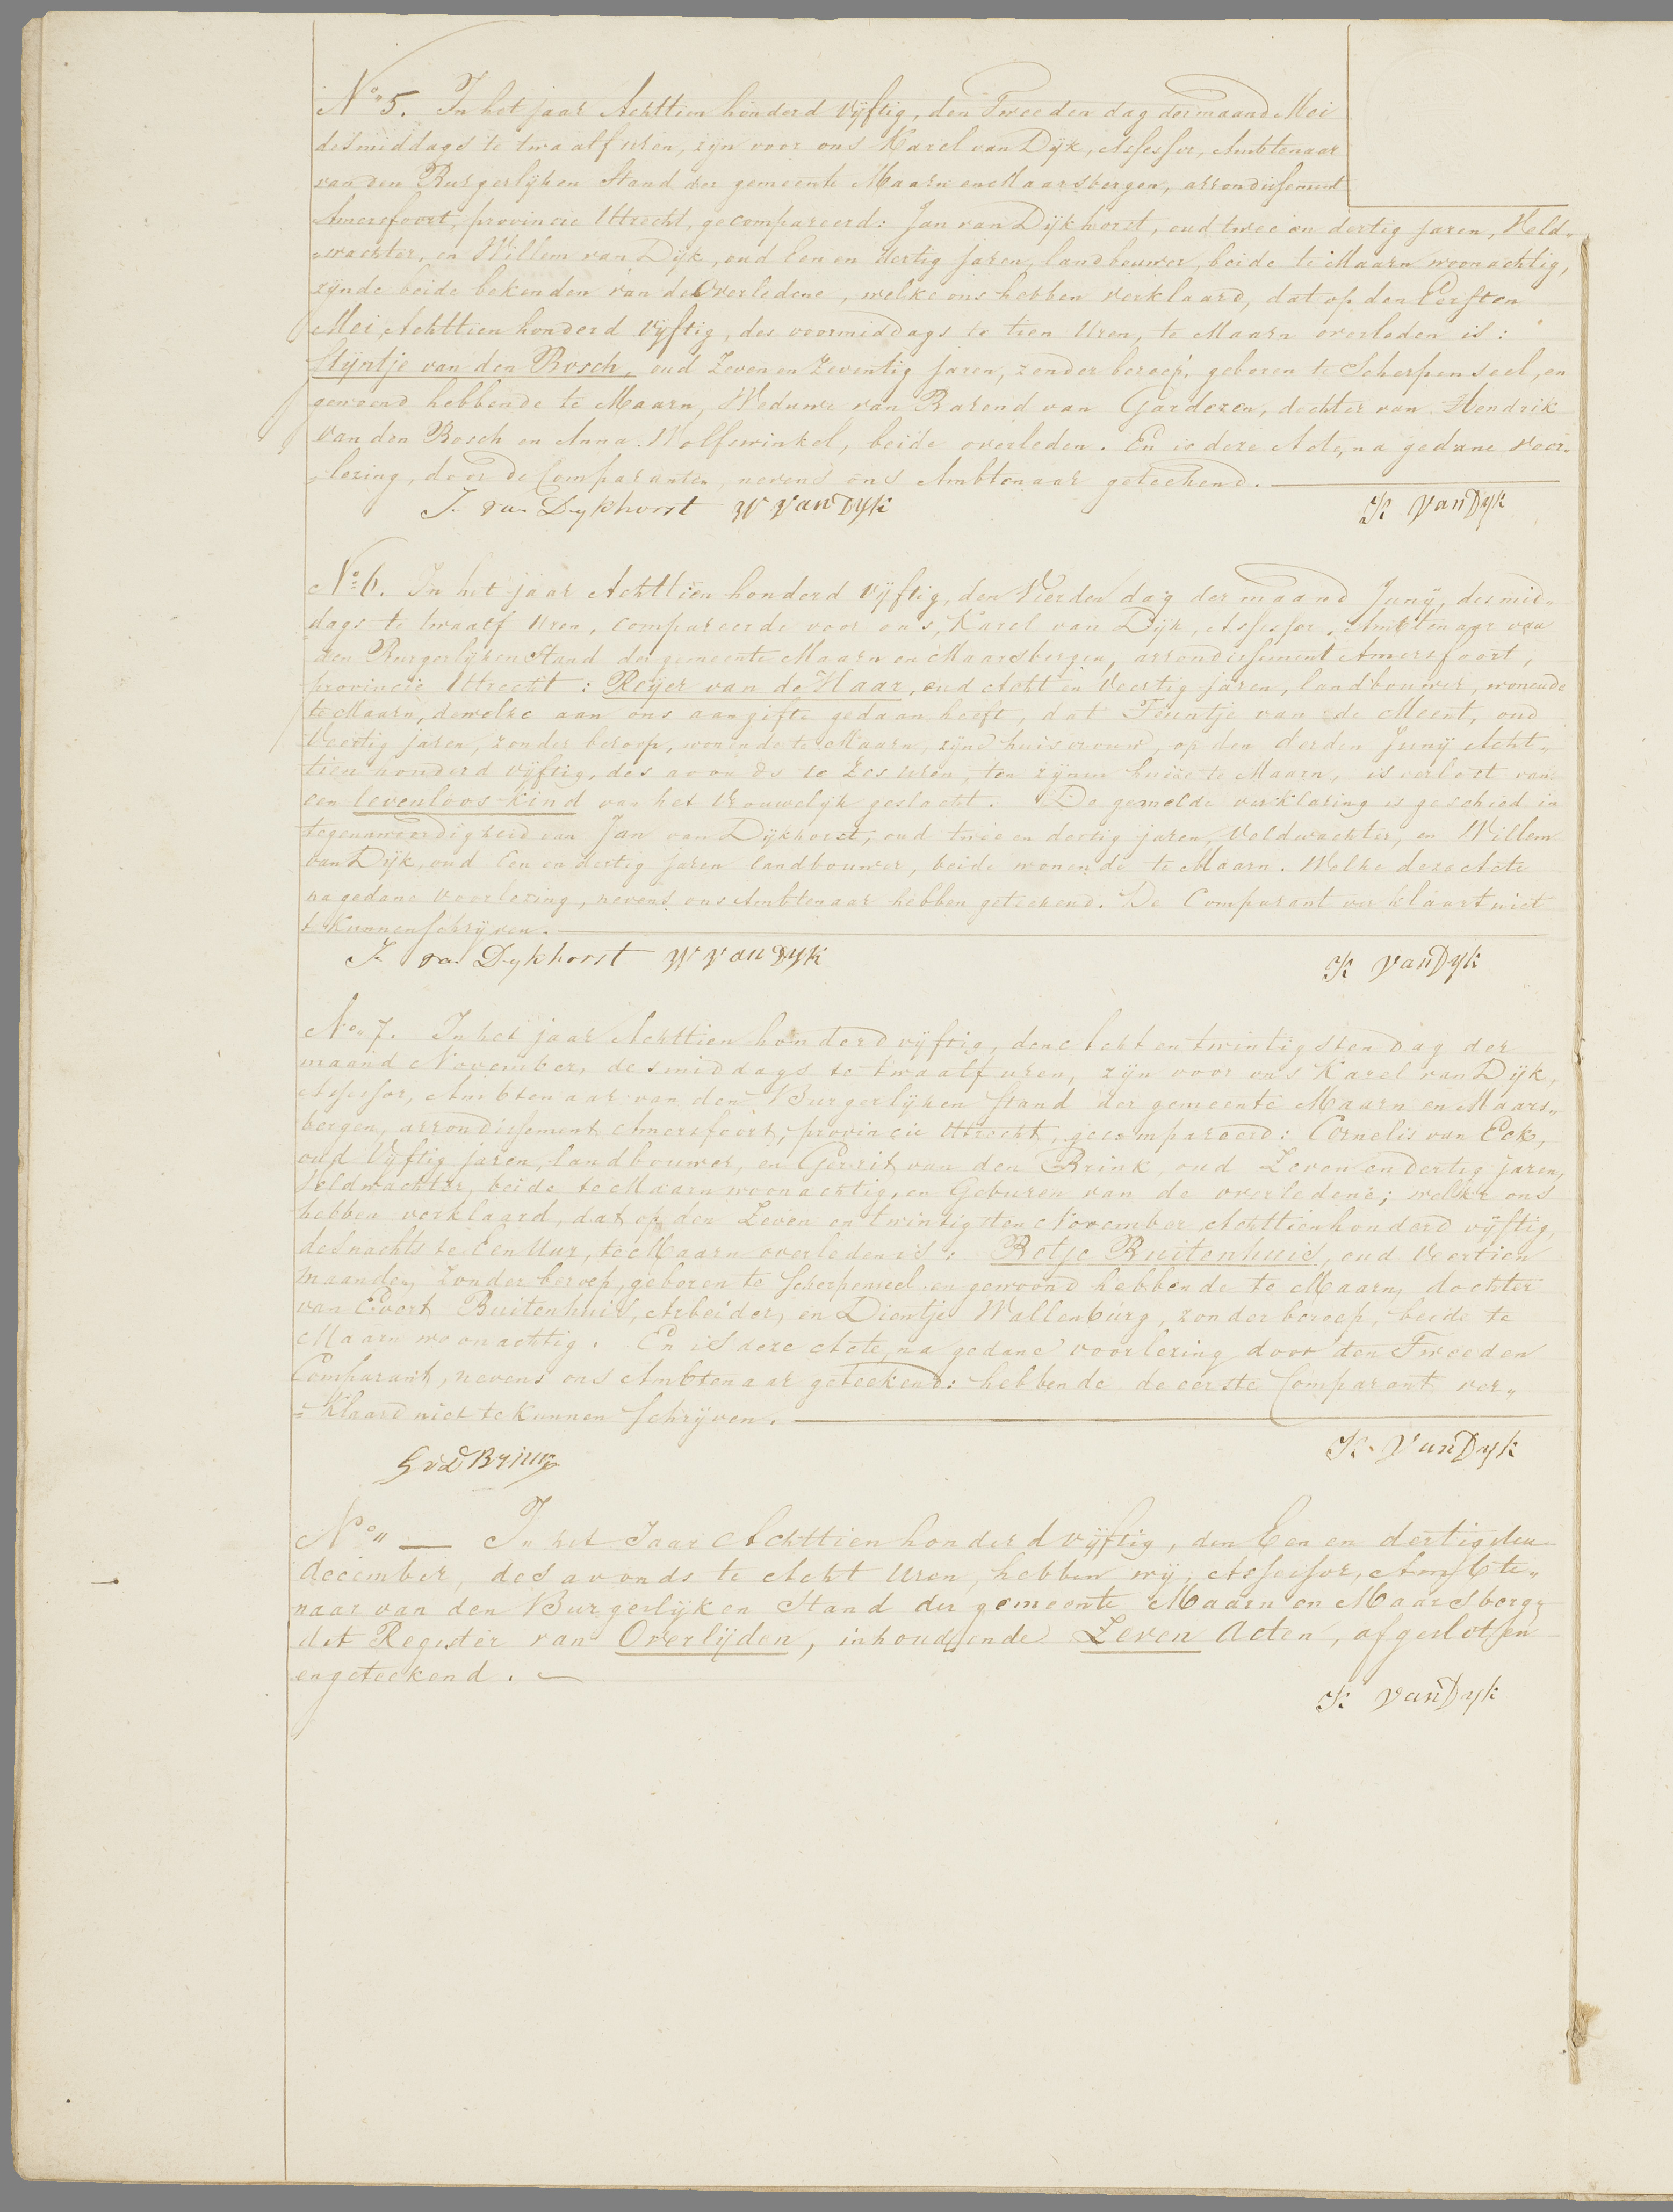 No 5. In het jaar Achttien honderd vijftig, den Tweeden dag der maand Mei
des middags te twaalf uren, zijn voor ons Karel van Dijk, Assessor, Ambtenaar
van den Burgerlijken Stand der gemeente Maarn en Maarsbergen, arrondissement
Amersfoort, provincie Utrecht, gecompareerd: Jan van Dijkhorst, oud twee en dertig jaren, Veld„
„wachter, en Willem van Dijk, oud Een en dertig jaren, landbouwer, beide te Maarn woonachtig,
zijnde beide bekenden van de Overledene, welke ons hebben verklaard, dat op den Eersten
Mei, Achttien honderd vijftig, des voormiddags te tien Uren, te Maarn overleden is:
Stijntje van den Bosch, oud Zeven en Zeventig jaren, zonder beroep, geboren te Scherpenseel, en
gewoond hebbende te Maarn, Weduwe van Barend van Garderen, dochter van Hendrik
van den Bosch en Anna Wolfswinkel, beide overleden. En is deze Acte, na gedane voor„
„lezing, door de Comparanten, nevens ons Ambtenaar geteekend.
J. van Dykhorst W van Dyk K van Dyk
No 6. In het jaar Achttien honderd vijftig, den Vierden dag der maand Junij, des mid„
dags te twaalf Uren, compareerde voor ons, Karel van Dijk, Assessor, Ambtenaar van
den Burgerlijken Stand der gemeente Maarn en Maarsbergen, arrondissement Amersfoort,
provincie Utrecht: Reijer van de Haar, oud Acht en Veertig jaren, landbouwer, wonende
te Maarn, dewelke aan ons aangifte gedaan heeft, dat Teuntje van de Meent, oud
Veertig jaren, zonder beroep, wonende te Maarn, zijne huisvrouw, op den derden Junij Acht„
tien honderd vijftig, des avonds te Zes uren, ten zijnen huize te Maarn, is verlost van
een levenloos kind van het Vrouwelijk geslacht. De gemelde verklaring is geschied in
tegenwoordigheid van Jan van Dijkhorst, oud twee en dertig jaren, Veldwachter, en Willem
van Dijk, oud Een en dertig jaren landbouwer, beide wonende te Maarn. Welke deze Acte
na gedane voorlezing, nevens ons Ambtenaar hebben geteekend. De Comparant verklaart niet
te kunnen schrijven.
J. van Dykhorst W van Dyk K van Dyk
No 7. In het jaar Achttien honderd vijftig, den Acht en twintigsten dag der
maand November, des middags te twaalf uren, zijn voor ons Karel van Dijk,
Assessor, Ambtenaar van den Burgerlijken Stand der gemeente Maarn en Maars„
bergen, arrondissement Amersfoort, provincie Utrecht, gecompareerd: Cornelis van Eck,
oud Vijftig jaren, landbouwer, en Gerrit van den Brink, oud Zeven en dertig jaren,
Veldwachter, beide te Maarn woonachtig, en Geburen van de overledene; welke ons
hebben verklaard, dat op den Zeven en twintigsten November Achttien honderd vijftig,
des nachts te Een Uur, te Maarn overleden is: Betje Buitenhuis, oud Veertien
maanden, zonder beroep, geboren te Scherpenseel en gewoond hebbende te Maarn, dochter
van Evert Buitenhuis, Arbeider, en Dientje Wallenburg, zonder beroep, beide te
Maarn woonachtig. En is deze Acte, na gedane voorlezing door den Tweeden
Comparant, nevens ons Ambtenaar geteekend: hebbende de eerste Comparant ver„
„klaard niet te kunnen schrijven.
G v d Brink K. van Dyk
No „ — In het Jaar Achttien honderd vijftig, den Een en dertigsten
december, des avonds te Acht Uren, hebben wij, Assessor, Ambte„
naar van den Burgerlijken Stand der gemeente Maarn en Maarsberg„
dit Register van Overlijden, inhoudende Zeven Acten, afgesloten
en geteekend.
K van Dyk